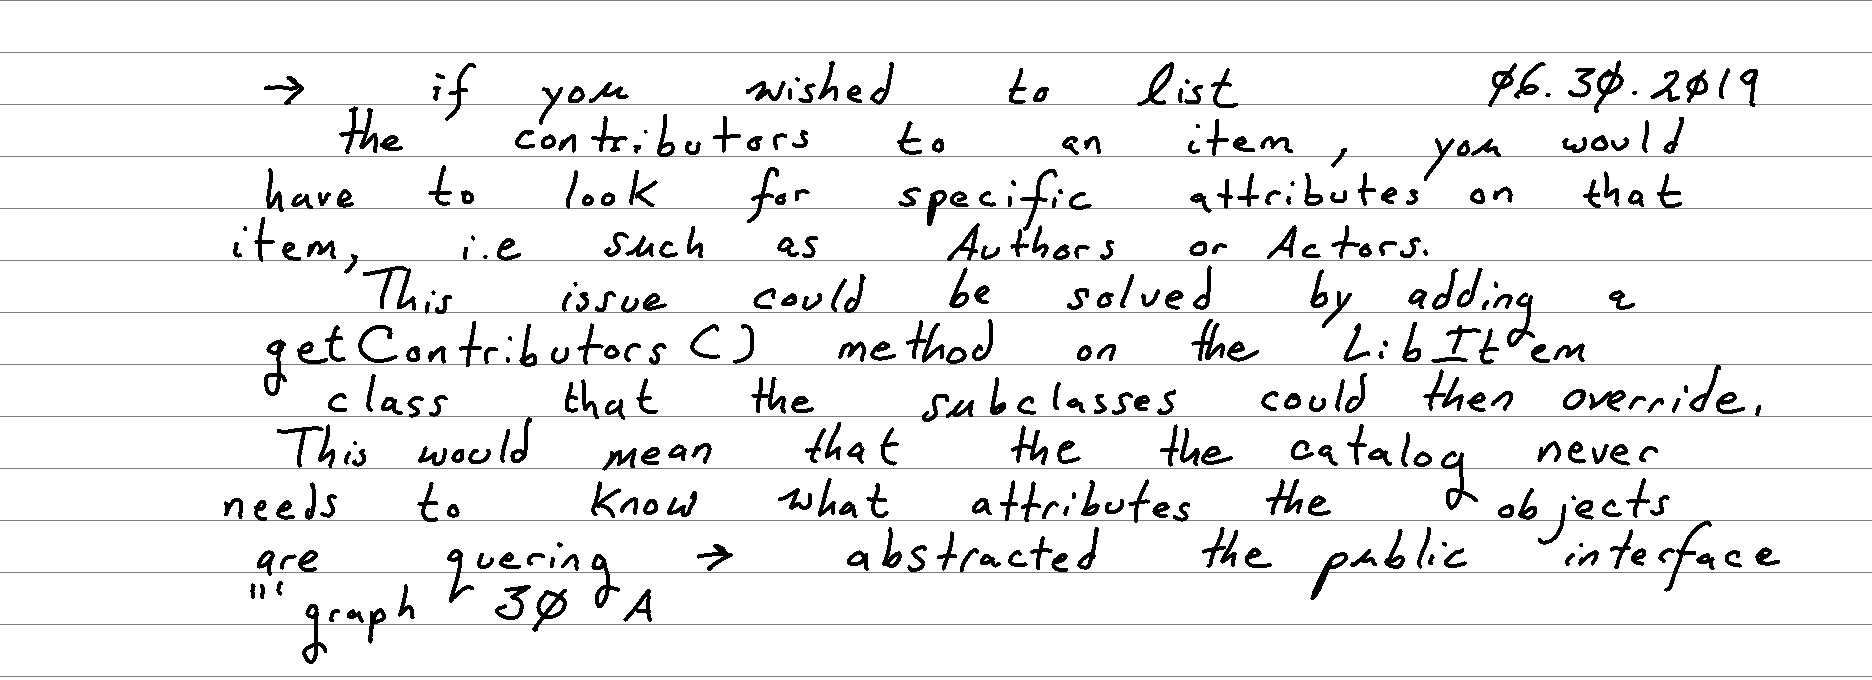 → if you wished to list 06.30.2019
the contributors to an item, you would
have to look for specific attributes on that
item, i.e such as Authors or Actors.
This issue could be solved by adding a
getContributors() method on the LibItem
class that the subclasses could then override.
This would mean that the the catalog never
needs to know what attributes the objects
are quering → abstracted the public interface
"' graph 30 A